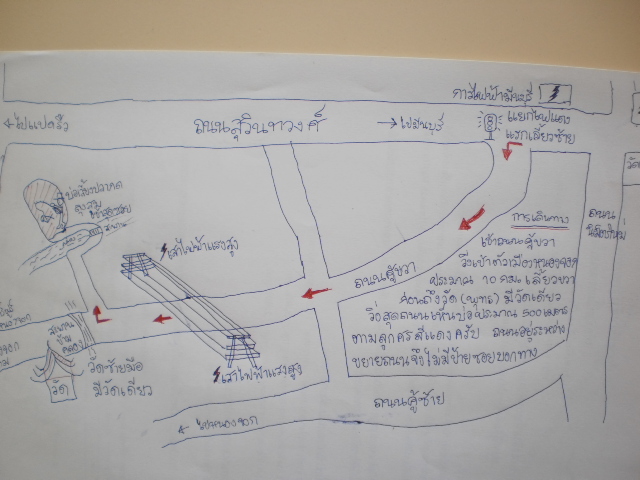 การไฟฟ้ามีนบุรี
แยกไฟแดง
แรกเลี้ยวซ้าย
ไปแปดริ้ว
ถนนสุวินทวงศ์
ไปมีนบุรี
บ่อเลี้ยงปลาคด
ลุงสม
เสาไฟฟ้าแรงสูง
ถนนคุ้ยขวา
การเดินทาง
เข้าถนนคุ้ยขวา
วิ่งเข้าตัวเมืองหนองจอก
ประมาณ 10 กม. เลี้ยวขวา
ก่อนถึงวัด (พุทธ) มีวัดเดียว
วิ่งสุดถนนเห็นบ่อประมาณ 500 เมตร
ตามลูกศรสีแดงครับ ถนนอยู่ระหว่าง
ขยายถนนจึงไม่มีป้ายซอยบอกทาง
ถนน
สะพาน
ข้าม
คลอง
วัด
วัดซ้ายมือ
มีวัดเดียว
เสาไฟฟ้าแรงสูง
ถนนคู้ซ้าย
ไปหนองจอก